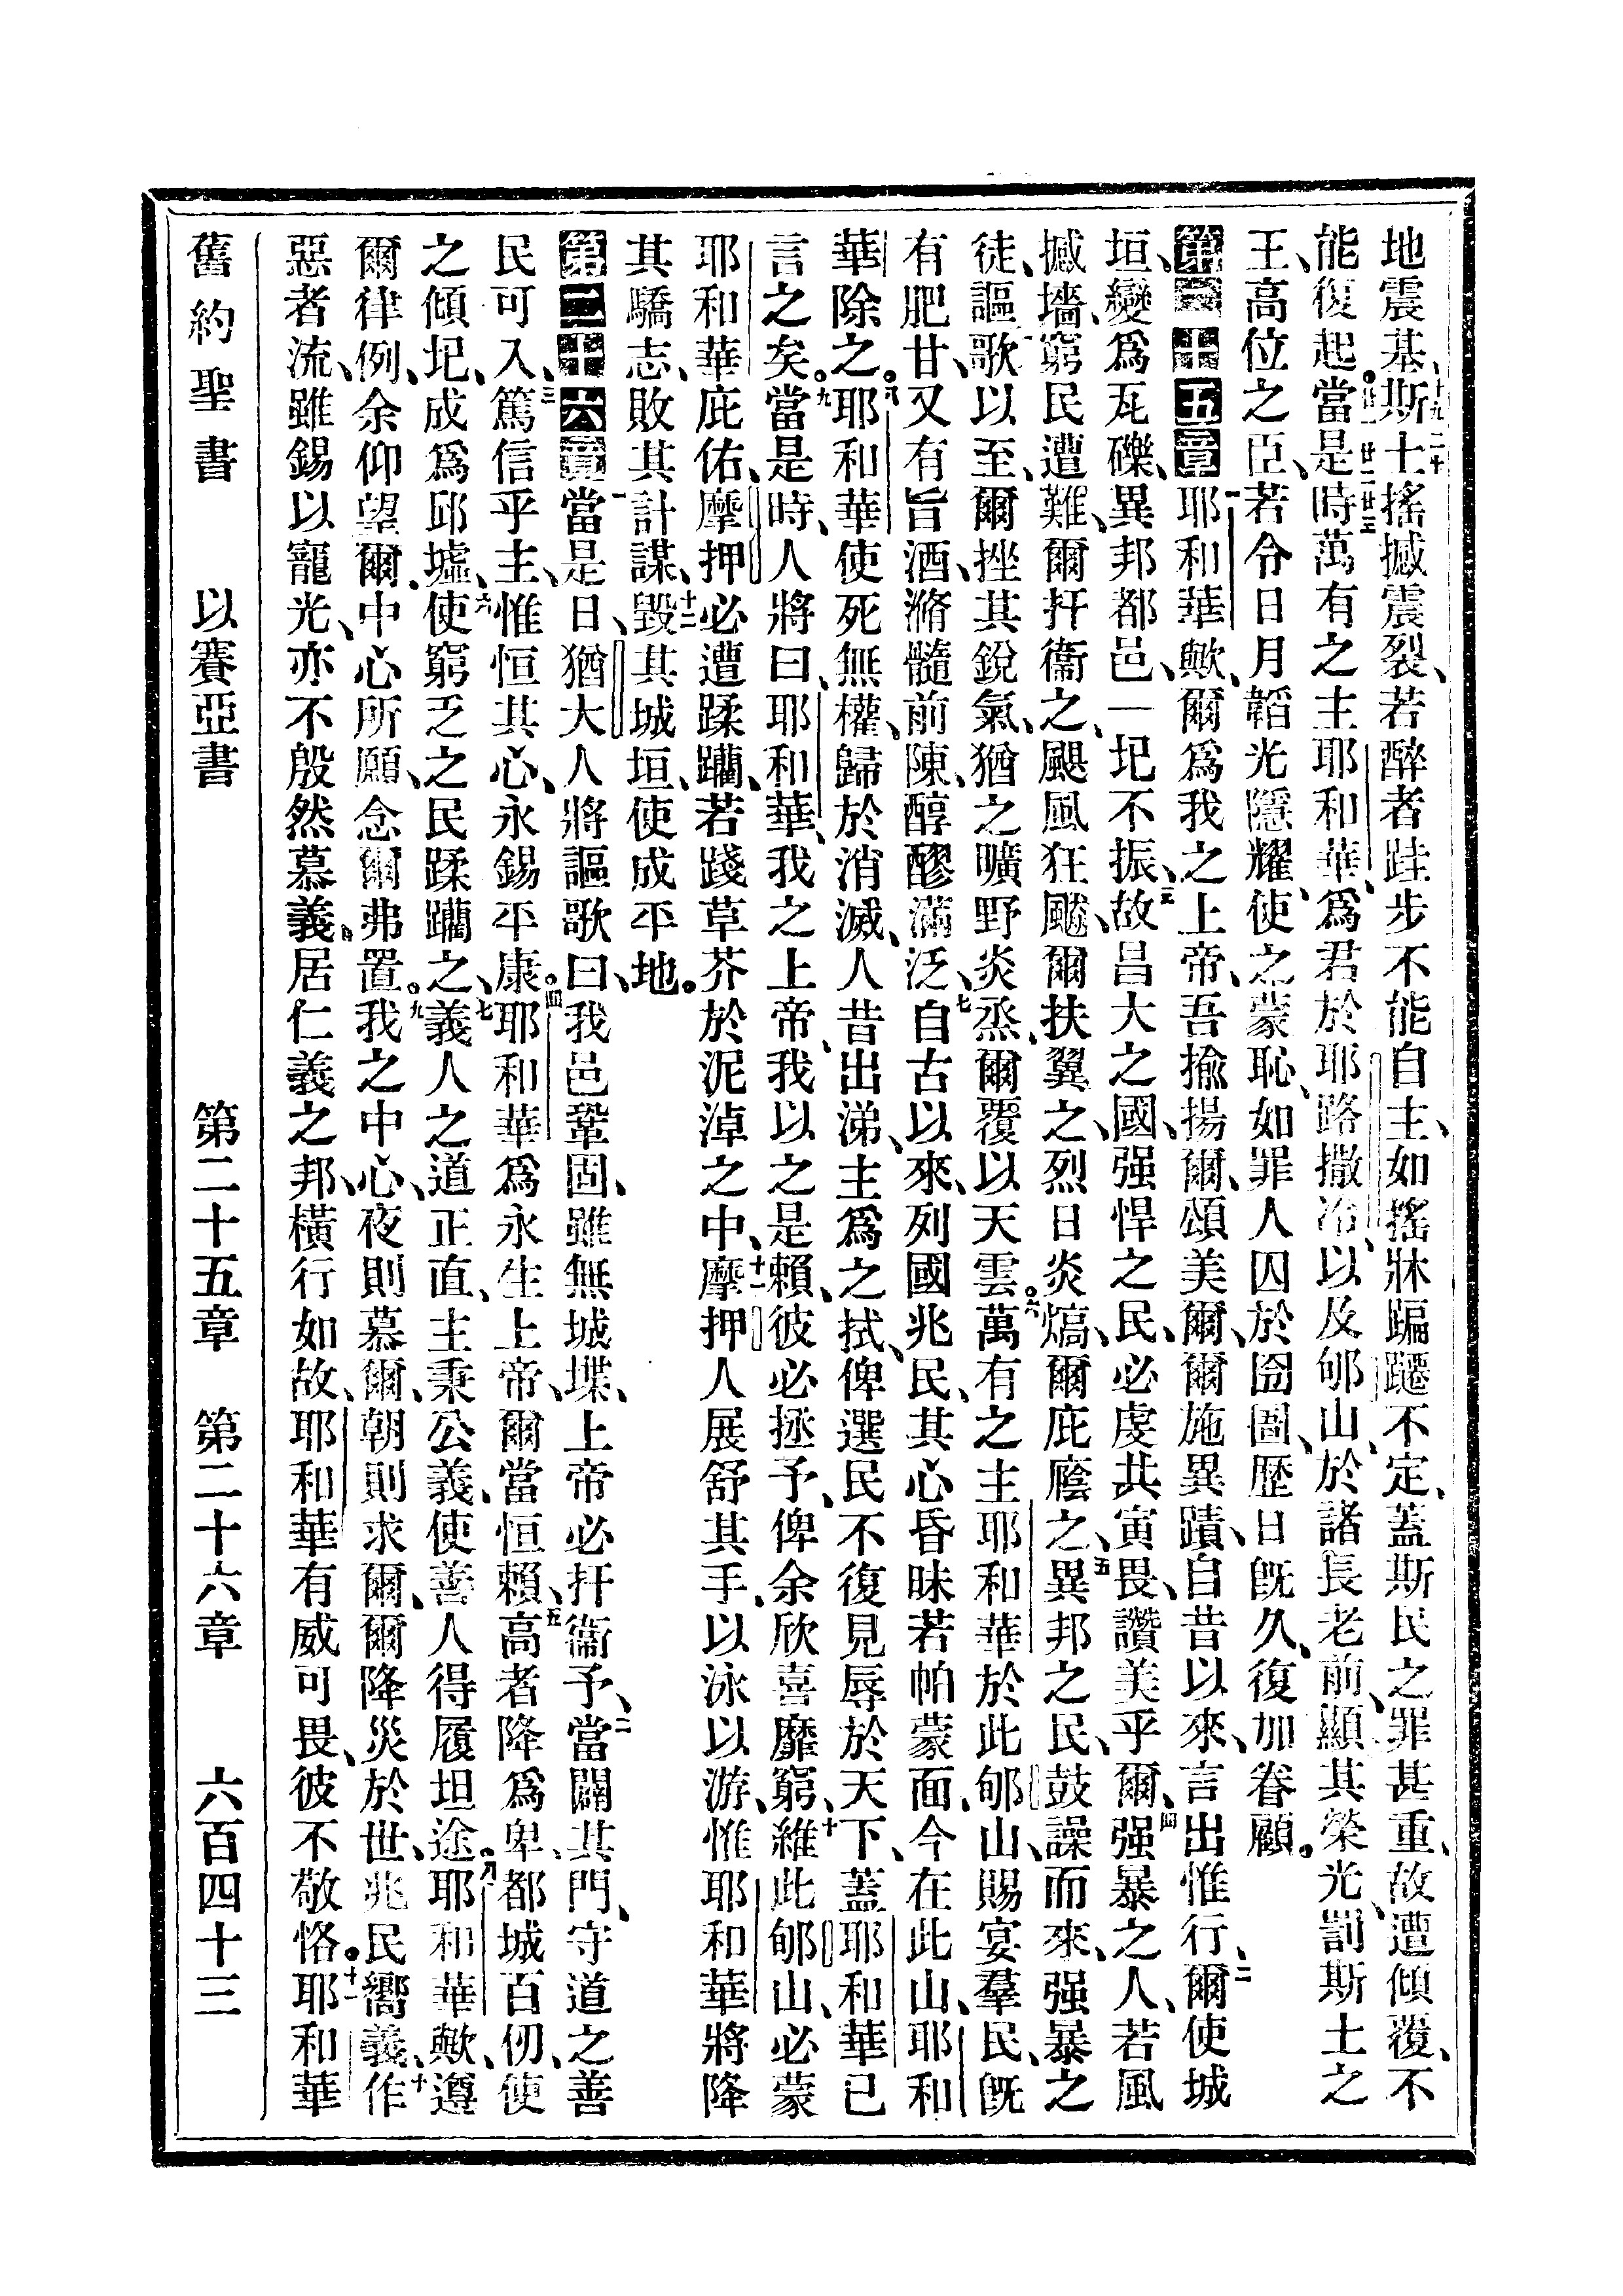 地震基、斯土搖撼震裂、若醉者跬步不能自主、如搖牀蹁躚不定、蓋斯民之罪甚重、故遭傾覆、不
能復起。當是時萬有之主耶和華、爲君於耶路撒冷、以及郇山、於諸長老前、顯其榮光、罰斯土之
王、高位之臣、若令日月韜光隱耀、使之蒙恥、如罪人囚於囹圄、歷日旣久、復加眷顧。
第二十五章 一耶和華歟、爾爲我之上帝、吾揄揚爾、頌美爾、爾施異蹟、自昔以來、言出惟行、二爾使城
垣、變爲瓦礫、異邦都邑、一圮不振、三故昌大之國、强悍之民、必虔共寅畏、讚美乎爾、四强暴之人、若風
撼墻、窮民遭難、爾扞衞之、颶風狂飈、爾扶翼之、烈日炎熇、爾庇廕之、五異邦之民、鼓譟而來、强暴之
徒、謳歌以至、爾挫其銳氣、猶之曠野炎烝、爾覆以天雲。六萬有之主耶和華於此郇山、賜宴羣民、旣
有肥甘、又有旨酒、滫髓前陳、醇醪滿泛、七自古以來、列國兆民、其心昏昧若帕蒙面、今在此山、耶和
華除之。八耶和華使死無權、歸於消滅、人昔出涕、主爲之拭、俾選民不復見辱於天下、蓋耶和華已
言之矣。九當是時、人將曰、耶和華、我之上帝、我以之是賴、彼必拯予、俾余欣喜靡窮、十維此郇山、必蒙
耶和華庇佑、摩押必遭蹂躪、若踐草芥於泥淖之中、十一摩押人展舒其手、以泳以游、惟耶和華將降
其驕志、敗其計謀、十二毀其城垣、使成平地。
第二十六章 一當是日、猶大人將謳歌曰、我邑鞏固、雖無城堞、上帝必扞衞予、二當闢其門、守道之善
民可入、三篤信乎主、惟恒其心、永錫平康。四耶和華爲永生上帝、爾當恒賴、五高者降爲卑、都城百仞、使
之傾圮、成爲邱墟、六使窮乏之民蹂躪之、七義人之道正直、主秉公義、使善人得履坦途。八耶和華歟、遵
爾律例、余仰望爾、中心所願、念爾弗置。九我之中心、夜則慕爾、朝則求爾、爾降災於世、兆民嚮義、十作
惡者流、雖錫以寵光、亦不殷然慕義、居仁義之邦、橫行如故、耶和華有威可畏、彼不敬恪。十一耶和華
舊約聖書 以賽亞書 第二十五章 第二十六章 六百四十三